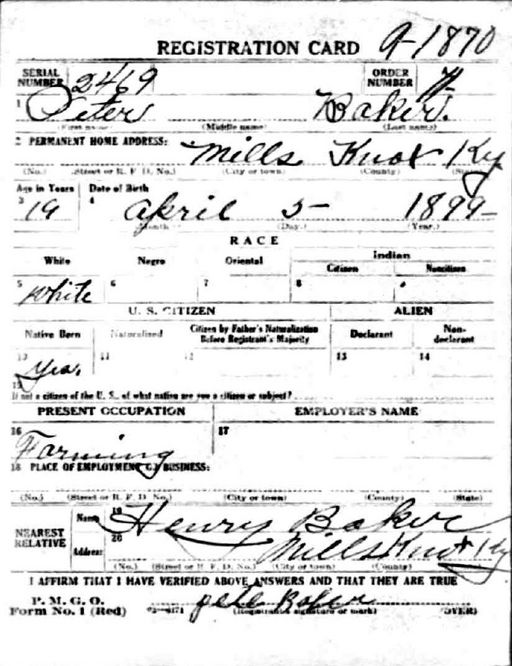 REGISTRATION CARD 9-1870
SERIAL NUMBER 2469 ORDER NUMBER
1 Peter Baker.
(First name) (Middle name) (Last name)
2 PERMANENT HOME ADDRESS: Mills Knox Ky
(No.) (Street or R. F. D. No.) (City or town) (County) (State)
Age in Years Date of Birth
3 19 4 April 5- 1899-
(Month) (Day.) (Year.)
RACE
White Negro Oriental Indian
Citizen Noncitizen
5 White 6 7 8
U. S. CITIZEN ALIEN
Native Born Naturalized Citizen by Father's Naturalization Before Registrant's Majority Declarant Non-declarant
10 Yes. 11 12 13 14
15
If not a citizen of the U. S., of what nation are you a citizen or subject?
PRESENT OCCUPATION EMPLOYER'S NAME
16 Farming 17
18 PLACE OF EMPLOYMENT OR BUSINESS:
(No.) (Street or R. F. D. No.) (City or town) (County) (State)
NEAREST RELATIVE Name 19 Henry Baker
Address 20 Mills Knox Ky
(No.) (Street or R. F. D. No.) (City or town) (County)
I AFFIRM THAT I HAVE VERIFIED ABOVE ANSWERS AND THAT THEY ARE TRUE
P. M. G. O.
Form No. 1 (Red) pete Baker (OVER)
(Registrant's signature or mark)